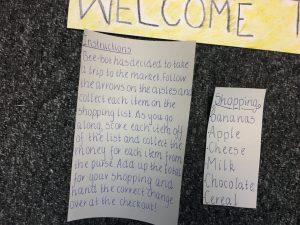 WELCOME T
Instructions
Bee-bot has decided to take
a trip to the market. Follow
the arrows on the aisles and
collect each item on the
shopping list. As you go
along, score each item off
of the list and collect the
money for each item from
the purse. Add up the total
for your shopping and
hand the correct change
over at the checkout!
Shopping
Bananas
Apple
Cheese
Milk
Chocolate
Cereal